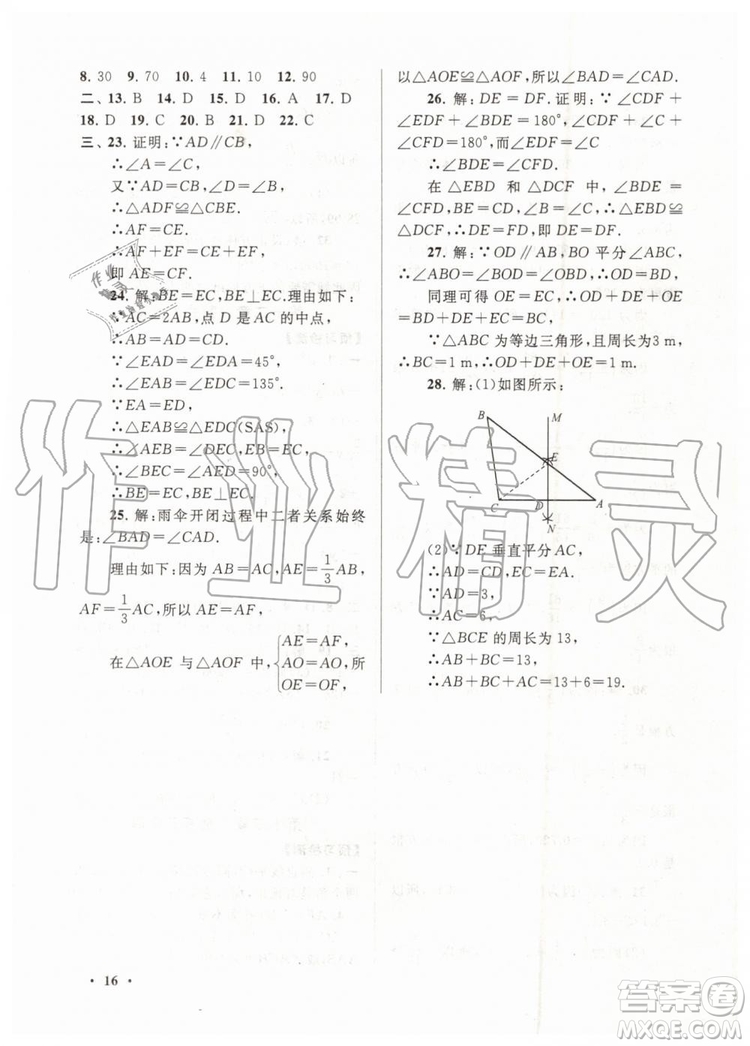 8. 30 9. 70 10. 4 11. 30 12. 90
二、13. B 14. D 15. D 16. A 17. D
18. D 19. C 20. B 21. D 22. C
三、23. 证明：∵AD∥CB，
∴∠A=∠C，
又∵AD=CB，∠D=∠B，
∴△ADF≌△CBE.
∴AF=CE.
∴AF+EF=CE+EF.
即 AE=CF.
24. 解：BE=EC，BE⊥EC.理由如下：
∵AC=2AB，点 D 是 AC 的中点，
∴AB=AD=CD，
∵∠EAD=∠EDA=45°，
∴∠EAB=∠EDC=135°.
∵EA=ED，
∴△EAB≌△EDC(SAS)，
∴∠AEB=∠DEC，EB=EC，
∴∠BEC=∠AED=90°，
∴BE=EC，BE⊥EC.
25. 解：雨伞开闭过程中二者关系始终
是：∠BAD=∠CAD.
理由如下：因为 AB=AC，AE=1/3AB，
AF=1/3AC，所以 AE=AF，
在△AOE 与△AOF 中，{AE=AF，AO=AO，OE=OF，所
以△AOE≌△AOF，所以∠BAD=∠CAD.
26. 解：DE=DF. 证明：∵∠CDF+
∠EDF+∠BDE=180°，∠C+∠CDF+
∠CFD=180°，而∠EDF=∠C，
∴∠BDE=∠CFD.
在△EBD 和△DCF 中，∠BDE=
∠CFD，BE=CD，∠B=∠C，
∴△BDE≌△CFD，∴DE=DF.
27. 解：∵OD∥AB，BO 平分∠ABC，
∴∠ABO=∠BOD=∠OBD，∴OD=BD，
同理可得 OE=EC，
∴BC=BD+DE+EC=OD+DE+OE.
∵△ABC 为等边三角形，且周长为3 m，
∴BC=1 m，∴OD+DE+OE=1 m.
28. 解：(1)如图所示：
B
M
E
C
D
A
N
(2)∵DE 垂直平分 AC，
∴AD=CD，EC=EA.
∵AD=3，
∴AC=6，
∵△BCE 的周长为 13，
∴AB+BC=13，
∴AB+BC+AC=13+6=19.
作业精灵
·16·
答案卷
MXQE.COM